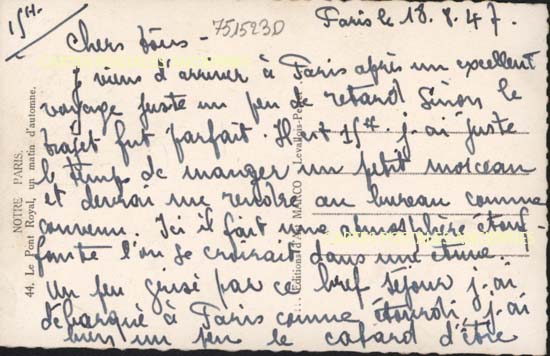 15H.
751523D
Paris le 18.8.47.
Chers tous -
Je viens d'arriver à Paris après un excellent
voyage juste un peu de retard sinon le
trajet fut parfait. Il est 15H. j'ai juste
le temps de manger un petit morceau
et devrai me rendre au bureau comme
convenu. Ici il fait une atmosphère étouf-
fante l'on se croirait dans une étuve.
Un peu grisé par ce bref séjour j'ai
débarqué à Paris comme étourdi j'ai
bien un peu le cafard d'être
NOTRE PARIS.
44. Le Pont Royal, un matin d'automne.
Editions d'Art MARCO